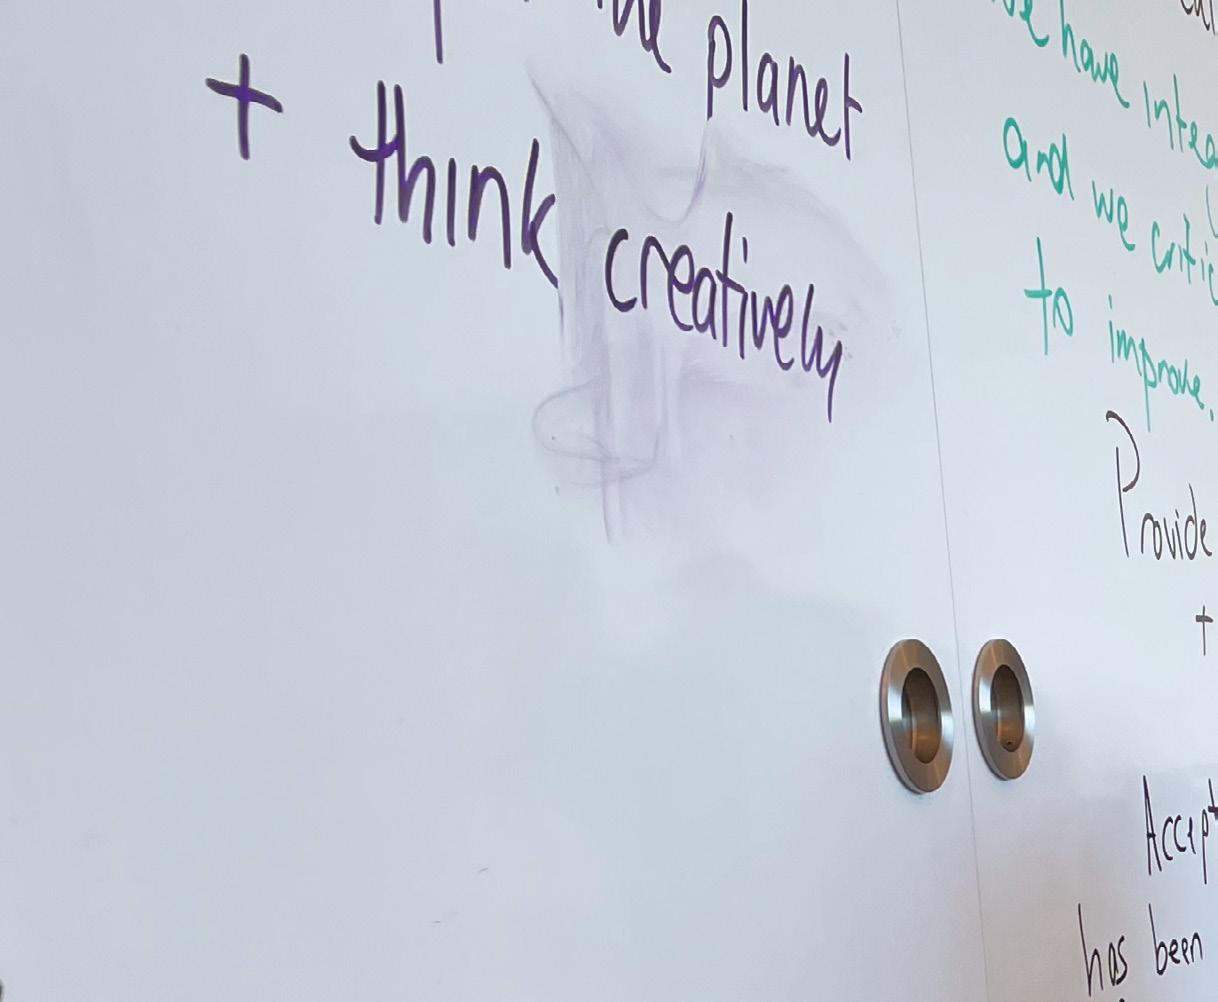 planet
+ think creatively
have
and we
to improve.
Provide
+
Accept
has been